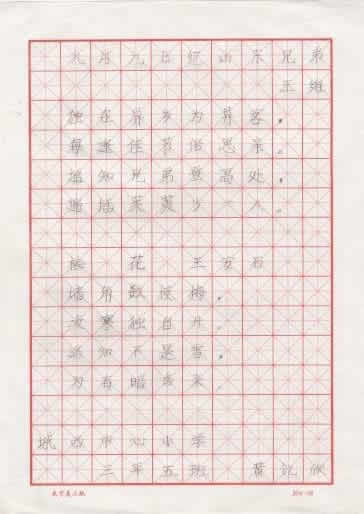 九月九日忆山东兄弟
王维
独在异乡为异客，
每逢佳节倍思亲。
遥知兄弟登高处，
遍插茱萸少一人。
梅 花 王安石
墙角数枝梅，
凌寒独自开。
遥知不是雪，
为有暗香来
城西中心小学
三年五班 黄